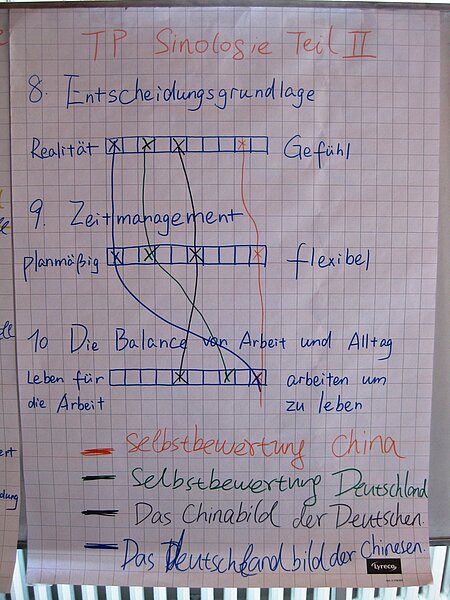 TP Sinologie Teil II
8. Entscheidungsgrundlage
Realität Gefühl
9. Zeitmanagement
planmäßig flexibel
10 Die Balance von Arbeit und Alltag
Leben für arbeiten um
die Arbeit zu leben
Selbstbewertung China
Selbstbewertung Deutschland
Das Chinabild der Deutschen.
Das Deutschlandbild der Chinesen.
Lyreco